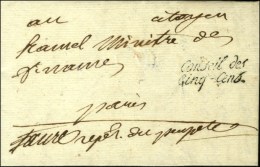 au citoyen
Ramel Ministre des
finances
Conseil des
Cinq-Cens.
paris
faure repst. du peuple